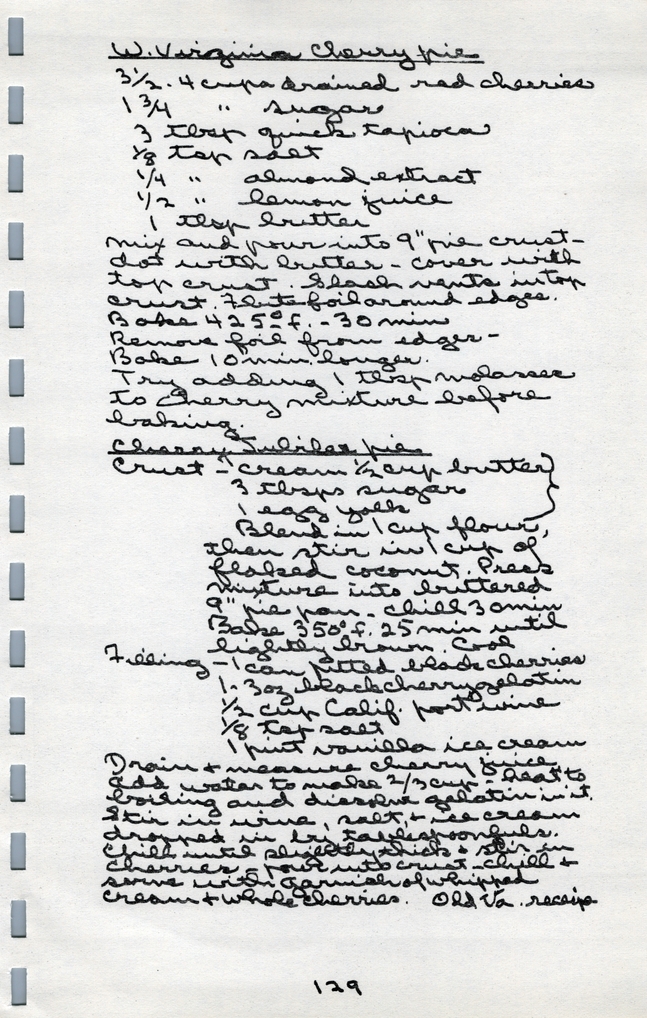 W. Virginia Cherry pie
3 1/2 - 4 cups drained red cherries
1 3/4 " sugar
3 tbsp quick tapioca
1/8 tsp salt
1/4 " almond extract
1/2 " lemon juice
1 tbsp butter
mix and pour into 9" pie crust -
dot with butter - cover with
top crust. Slash vents in top
crust. Flute foil around edges.
Bake 425° f. - 30 min
Remove foil from edges -
Bake 10 min. longer.
Try adding 1 tbsp molasses
to cherry mixture before
baking.
Cherry Jubilee pie
Crust - cream 1/2 cup butter
3 tbsps sugar
1 egg yolk
Blend in 1 cup flour,
then stir in 1 cup of
flaked coconut. Press
mixture into buttered
9" pie pan - chill 30 min
Bake 350° f. 25 min until
lightly brown. Cool
Filling - 1 can pitted black cherries
1 - 3 oz black cherry gelatin
1/2 cup Calif. port wine
1/8 tsp salt
1 pint vanilla ice cream
Drain + measure cherry juice
add water to make 2/3 cup - heat to
boiling and dissolve gelatin in it.
Stir in wine, salt, + ice cream
dropped in by tablespoonfuls.
Chill until slightly thick + stir in
cherries, pour into crust - chill +
serve with garnish of whipped
cream + whole cherries. Old Va. receipe
129